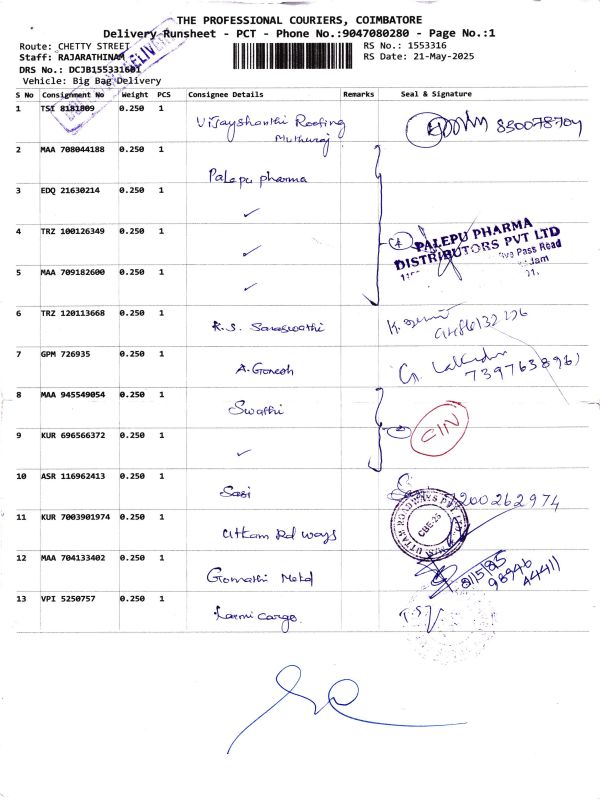 THE PROFESSIONAL COURIERS, COIMBATORE
Delivery Runsheet - PCT - Phone No.:9047080280 - Page No.:1
Route: CHETTY STREET
RS No.: 1553316
Staff: RAJARATHINAM
RS Date: 21-May-2025
DRS No.: DCJB155331601
Vehicle: Big Bag Delivery
S No Consignment No Weight PCS Consignee Details Remarks Seal & Signature
1 TSI 8181809 0.250 1 Vijayshanthi Roofing 850078704
Muthuraj
2 MAA 708044188 0.250 1 Palepu pharma
3 EDQ 21630214 0.250 1 ✓
4 TRZ 100126349 0.250 1 ✓ 4 PALEPU PHARMA
DISTRIBUTORS PVT LTD
Pass Road
5 MAA 709182600 0.250 1 ✓
6 TRZ 120113668 0.250 1 R.S. Saraswathi K.
7 GPM 726935 0.250 1 A. Ganesh G.
7397638961
8 MAA 945549054 0.250 1 Swathi
CIN
9 KUR 696566372 0.250 1 ✓
10 ASR 116962413 0.250 1 Sasi 7200262974
11 KUR 7003901974 0.250 1 Uttam Rd ways UTTAM ROADWAYS PVT. LTD.
CBE-25
12 MAA 704133402 0.250 1 Gomathi Metal
98946
44411
13 VPI 5250757 0.250 1 Laxmi cargo